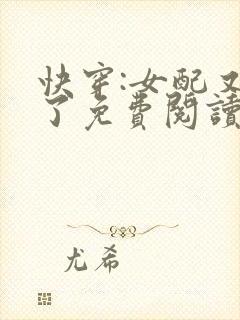 快穿:女配又
了免費閱讀
尤希